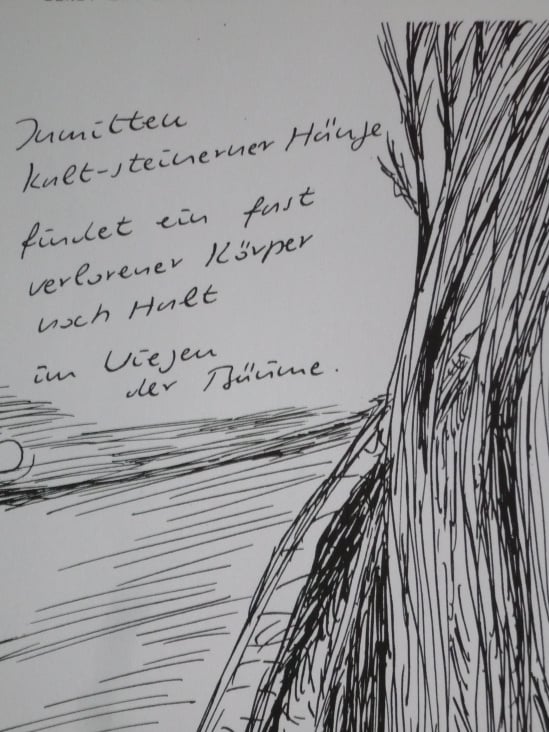 Inmitten
kalt-steinerner Hänge
findet ein fast
verlorener Körper
noch Halt
im Wiegen
der Bäume.